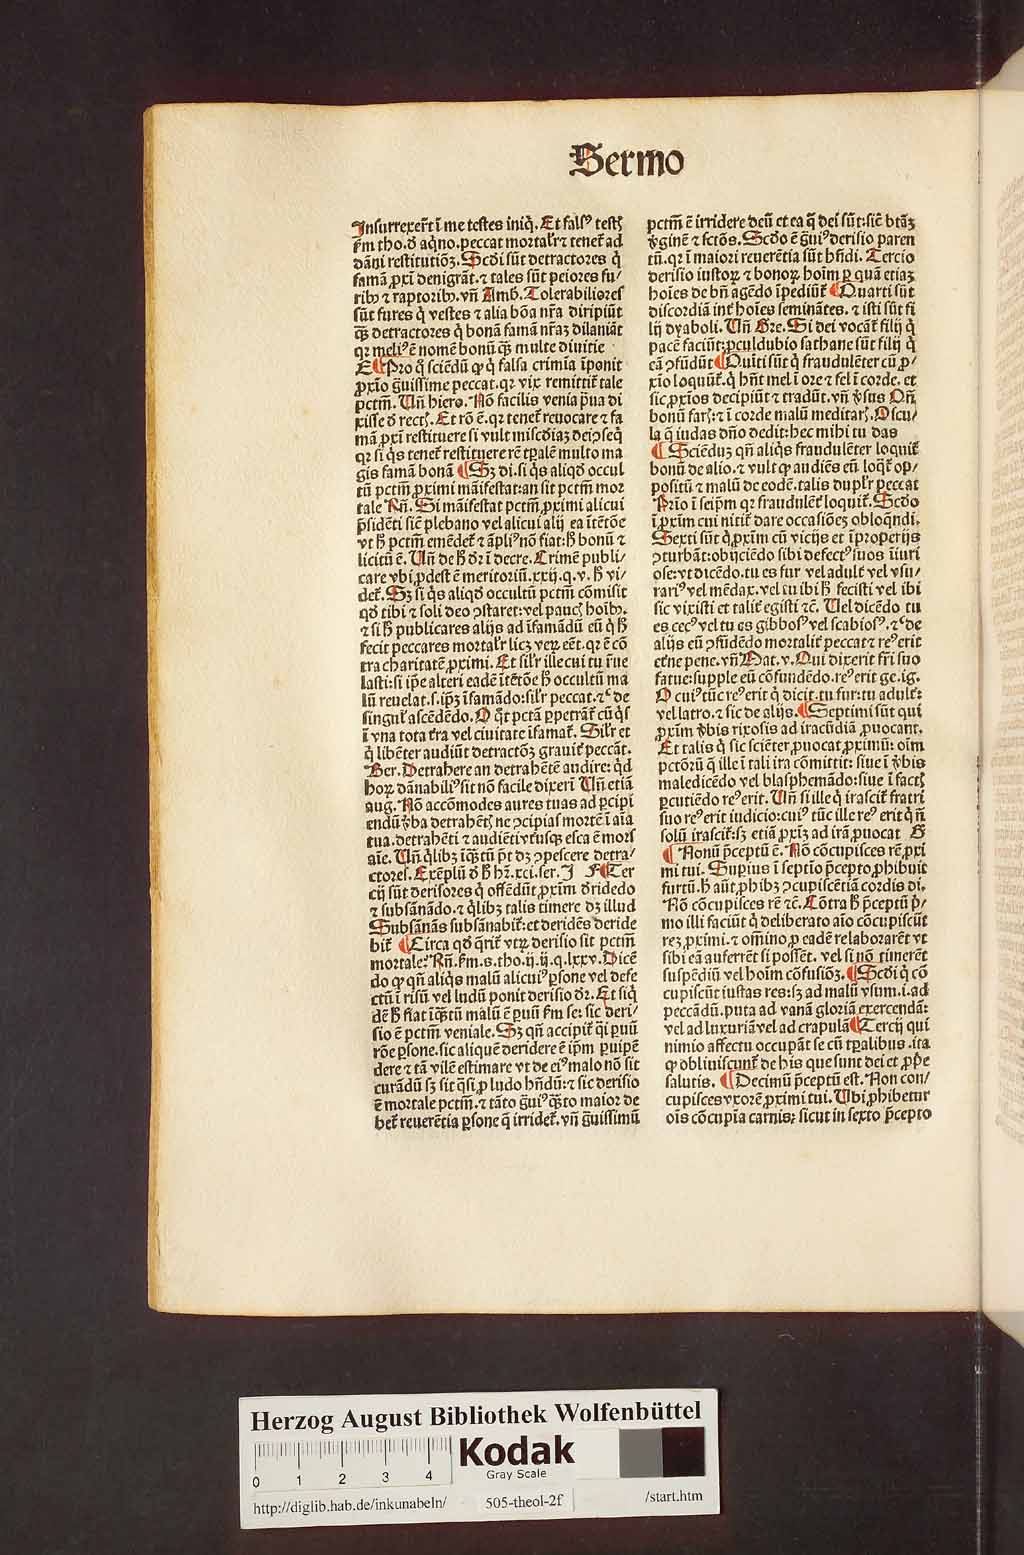 Sermo
Insurrexer̄t ī me testes iniq̇. Et falsꝰ testꝭ
fm tho. ð aq̇no. peccat mortalr̄ ⁊ tenet̄ ad
dāni restitutiōꝫ. Scḋi sūt detractores q̇
famā ꝓxi denigrāt. ⁊ tales sūt peiores fu/
ribꝰ ⁊ raptoribꝰ. vn̄ Amb. Tolerabiliores
sūt fures q̇ vestes ⁊ alia bōa nr̄a diripiūt
qꝫ̄ detractores q̇ bonā famā nr̄aꝫ dilaniāt
qꝛ meliꝰ ē nomē bonū qꝫ̄ multe diuitie
E ¶ Pro q̇ sciēdū ꝙ q̇ falsa crimīa īponit
ꝓxīo ḡuissime peccat. qꝛ vix remittit̄ tale
pctm̄. Un̄ hiero. Nō facilis venia p̄ua di
xisse ð rectꝭ. Et rō ē. qꝛ tenet̄ reuocare ⁊ fa
mā ꝓxi restituere si vult mis̄cdiaꝫ dei ↄseq̇
qꝛ si q̇s tenet̄ restituere rē tp̄alē multo ma
gis famā bonā ¶ Sꝫ di. si q̇s aliqð occul
tū pctm̄ ꝓximi māifestat: an sit pctm̄ mor
tale Rn̄. Si māifestat pctm̄ ꝓximi alicui
p̄sidēti sic̄ plebano vel alicui alij ea ītētōe
vt ꝧ pctm̄ emēdet̄ ⁊ āpliꝰ nō fiat: ꝧ bonū ⁊
licitū ē. Un̄ de ꝧ dꝛ ī decre. Crimē publi/
care vbi ꝓdest ē meritoriū. xxij. q. v. ꝧ vi/
det̄. Sꝫ si q̇s aliqð occultū pctm̄ cōmisit
qð tibi ⁊ soli deo ↄstaret: vel paucꝭ hoībꝰ.
⁊ si ꝧ publicares alijs ad īfamādū eū q̇ ꝧ
fecit peccares mortalr̄ licꝫ veꝝ eēt. qꝛ ē cō
tra charitatē ꝓximi. Et silr̄ ille cui tu r̄ue
lasti: si ip̄e alteri eadē ītētōe ꝧ occultū ma
lū reuelat. s. ip̄ꝫ īfamādo: silr̄ peccat. ⁊ꝯ de
singul̄ ascēdēdo. O q̄t pctā ꝑpetrāt̄ cū q̇s
ī vna tota tr̄a vel ciuitate īfamat̄. Silr̄ et
q̇ libēter audiūt detractōꝫ grauit̄ peccāt.
Ber. Detrahere an detrahētē audire: q̇d
hoꝝ dānabiliꝰ sit nō facile dixeri Un̄ etiā
aug. Nō accōmodes aures tuas ad ꝑcipi
endū v̄ba detrahētꝭ ne ↄcipias mortē ī aīa
tua. detrahēti ⁊ audiēti vtꝛiusqꝫ esca ē mors
aīe. Un̄ q̇libꝫ īqꝫ̄tū p̄t dꝫ ↄpescere detra/
ctores. Exēplū ð ꝧ hꝛ̄. xci. ser. J F ¶ Ter
cij sūt derisores q̇ offēdūt ꝓxim̄ ðridedo
⁊ subsānādo. ⁊ q̇libꝫ talis timere dꝫ illud
Subsānās subsānabit̄: et deridēs deride
bit̄ ¶ Circa qð q̄rit̄ vtꝝ derisio sit pctm̄
mortale? Rn̄. fm. s. tho. ij. ij. q. lxxv. Dicē
do ꝙ qn̄ aliq̇s malū alicuiꝰ ꝑsone vel defe
ctū ī risū vel ludū ponit derisio dꝛ. Et siq̇
dē ꝧ fiat īqꝫ̄tū malū ē ꝑuū fm se: sic deri/
sio ē pctm̄ veniale. Sꝫ qn̄ accipit̄ q̇i ꝑuū
rōe ꝑsone. sic aliquē deridere ē ip̄m ꝑuipē
dere ⁊ tā vilē estimare vt de eiꝰ malo nō sit
curādū sꝫ sit q̇si ꝓ ludo hn̄dū: ⁊ sic derisio
ē mortale pctm̄. ⁊ tāto ḡuiꝰ qꝫ̄to maior de
bet̄ reuerētia ꝑsone q̄ irridet̄. vn̄ ḡuissimū
pctm̄ ē irridere deū et ea q̄ dei sūt: sic̄ btāꝫ
v̄ginē ⁊ sctōs. Scḋo ē ḡuiꝰ derisio paren
tū. qꝛ ī maiori reuerētia sūt hn̄di. Tercio
derisio iustoꝝ ⁊ bonoꝝ hoīm ꝑ quā etiaꝫ
hoīes de bn̄ agēdo īpediūt̄ ¶ Quarti sūt
discordiā int̄ hoīes seminātes. ⁊ isti sūt fi
lij dyaboli. Un̄ Gre. Si dei vocāt̄ filij q̇
pacē faciūt: ꝓculdubio sathane sūt filij q̇
eā ↄfūdūt ¶ Quīti sūt q̇ fraudulēter cū ꝓ/
xīo loquūt̄. q̇ hn̄t mel ī ore ⁊ fel ī corde. et
sic ꝓxios decipiūt ⁊ tradūt. vn̄ v̄sus Qn̄
bonū farꝭ: ⁊ ī corde malū meditarꝭ. Oscu/
la q̄ iudas dn̄o dedit: hec mihi tu das
¶ Sciēduꝫ qn̄ aliq̇s fraudulēter loquit̄
bonū de alio. ⁊ vult ꝙ audiēs eū loq̄t̄ op/
positū ⁊ malū de eodē. talis duplr̄ peccat
Prīo ī seip̄m qꝛ fraudulēt̄ loquit̄. Scḋo
ī ꝓxim̄ cui nitit̄ dare occasiōeꝫ obloq̇ndi.
Sexti sūt q̇ ꝓxim̄ cū vicijs et īproperijs
ↄturbāt: obijciēdo sibi defectꝰ suos īiuri
ose: vt dicēdo. tu es fur vel adult̄ vel vsu/
rariꝰ vel mēdax. vel tu ibi ꝧ fecisti vel ibi
sic vixisti et talit̄ egisti ⁊c̄. Uel dicēdo tu
es cecꝰ vel tu es gibbosꝰ vel scabiosꝰ. ⁊ꝯ de
alijs eū ↄfūdēdo mortalit̄ peccat ⁊ reꝰ erit
etn̄e pene. vn̄ Mat. v. Qui dixerit fr̄i suo
fatue: supple eū cōfundēdo. reꝰ erit ge. ig.
O cuiꝰ tūc reꝰ erit q̇ dicit. tu fur: tu adult̄:
vel latro. ⁊ sic de alijs. ¶ Septimi sūt qui
ꝓxim̄ v̄bis rixosis ad iracūdiā ꝓuocant.
Et talis q̇ sic sciēter ꝓuocat ꝓximū: oīm
pctōꝝ q̄ ille ī tali ira cōmittit: siue ī v̄bis
maledicēdo vel blasphemādo: siue ī factꝭ
ꝑcutiēdo reꝰ erit. Un̄ si ille q̇ irascit̄ fratri
suo reꝰ erit iudicio: cuiꝰ tūc ille reꝰ erit q̇ n̄
solū irascit̄: sꝫ etiā ꝓxiꝫ ad irā ꝓuocat G
¶ Nonū p̄ceptū ē. Nō cōcupisces rē ꝓxi
mi tui. Supius ī septīo p̄cepto ꝓhibuit
furtū. ꝧ aūt ꝓhibꝫ ↄcupiscētiā cordis di.
Nō cōcupisces rē ⁊c̄. Cōtra ꝧ p̄ceptū p̄/
mo illi faciūt q̇ deliberato aīo cōcupiscūt
reꝫ ꝓximi. ⁊ om̄ino ꝓ eadē relaborarēt vt
sibi eā auferrēt si possēt. vel si nō timerēt
suspēdiū vel hoīm cōfusiōꝫ. ¶ Scḋi q̇ cō
cupiscūt iustas res: sꝫ ad malū vsum. i. ad
peccādū. puta ad vanā gloriā exercendā:
vel ad luxuriā vel ad crapulā ¶ Tercij qui
nimio affectu occupāt se cū tp̄alibus. ita
ꝙ obliuiscunt̄ de his que sunt dei et ꝓp̄e
salutis. ¶ Decimū p̄ceptū est. Non con/
cupisces vxorē ꝓximi tui. Ubi ꝓhibetur
oīs cōcupīa carnis: sicut in sexto p̄cepto
Herzog August Bibliothek Wolfenbüttel
0 1 2 3 4
Kodak
Gray Scale
http://diglib.hab.de/inkunabeln/ 505-theol-2f /start.htm